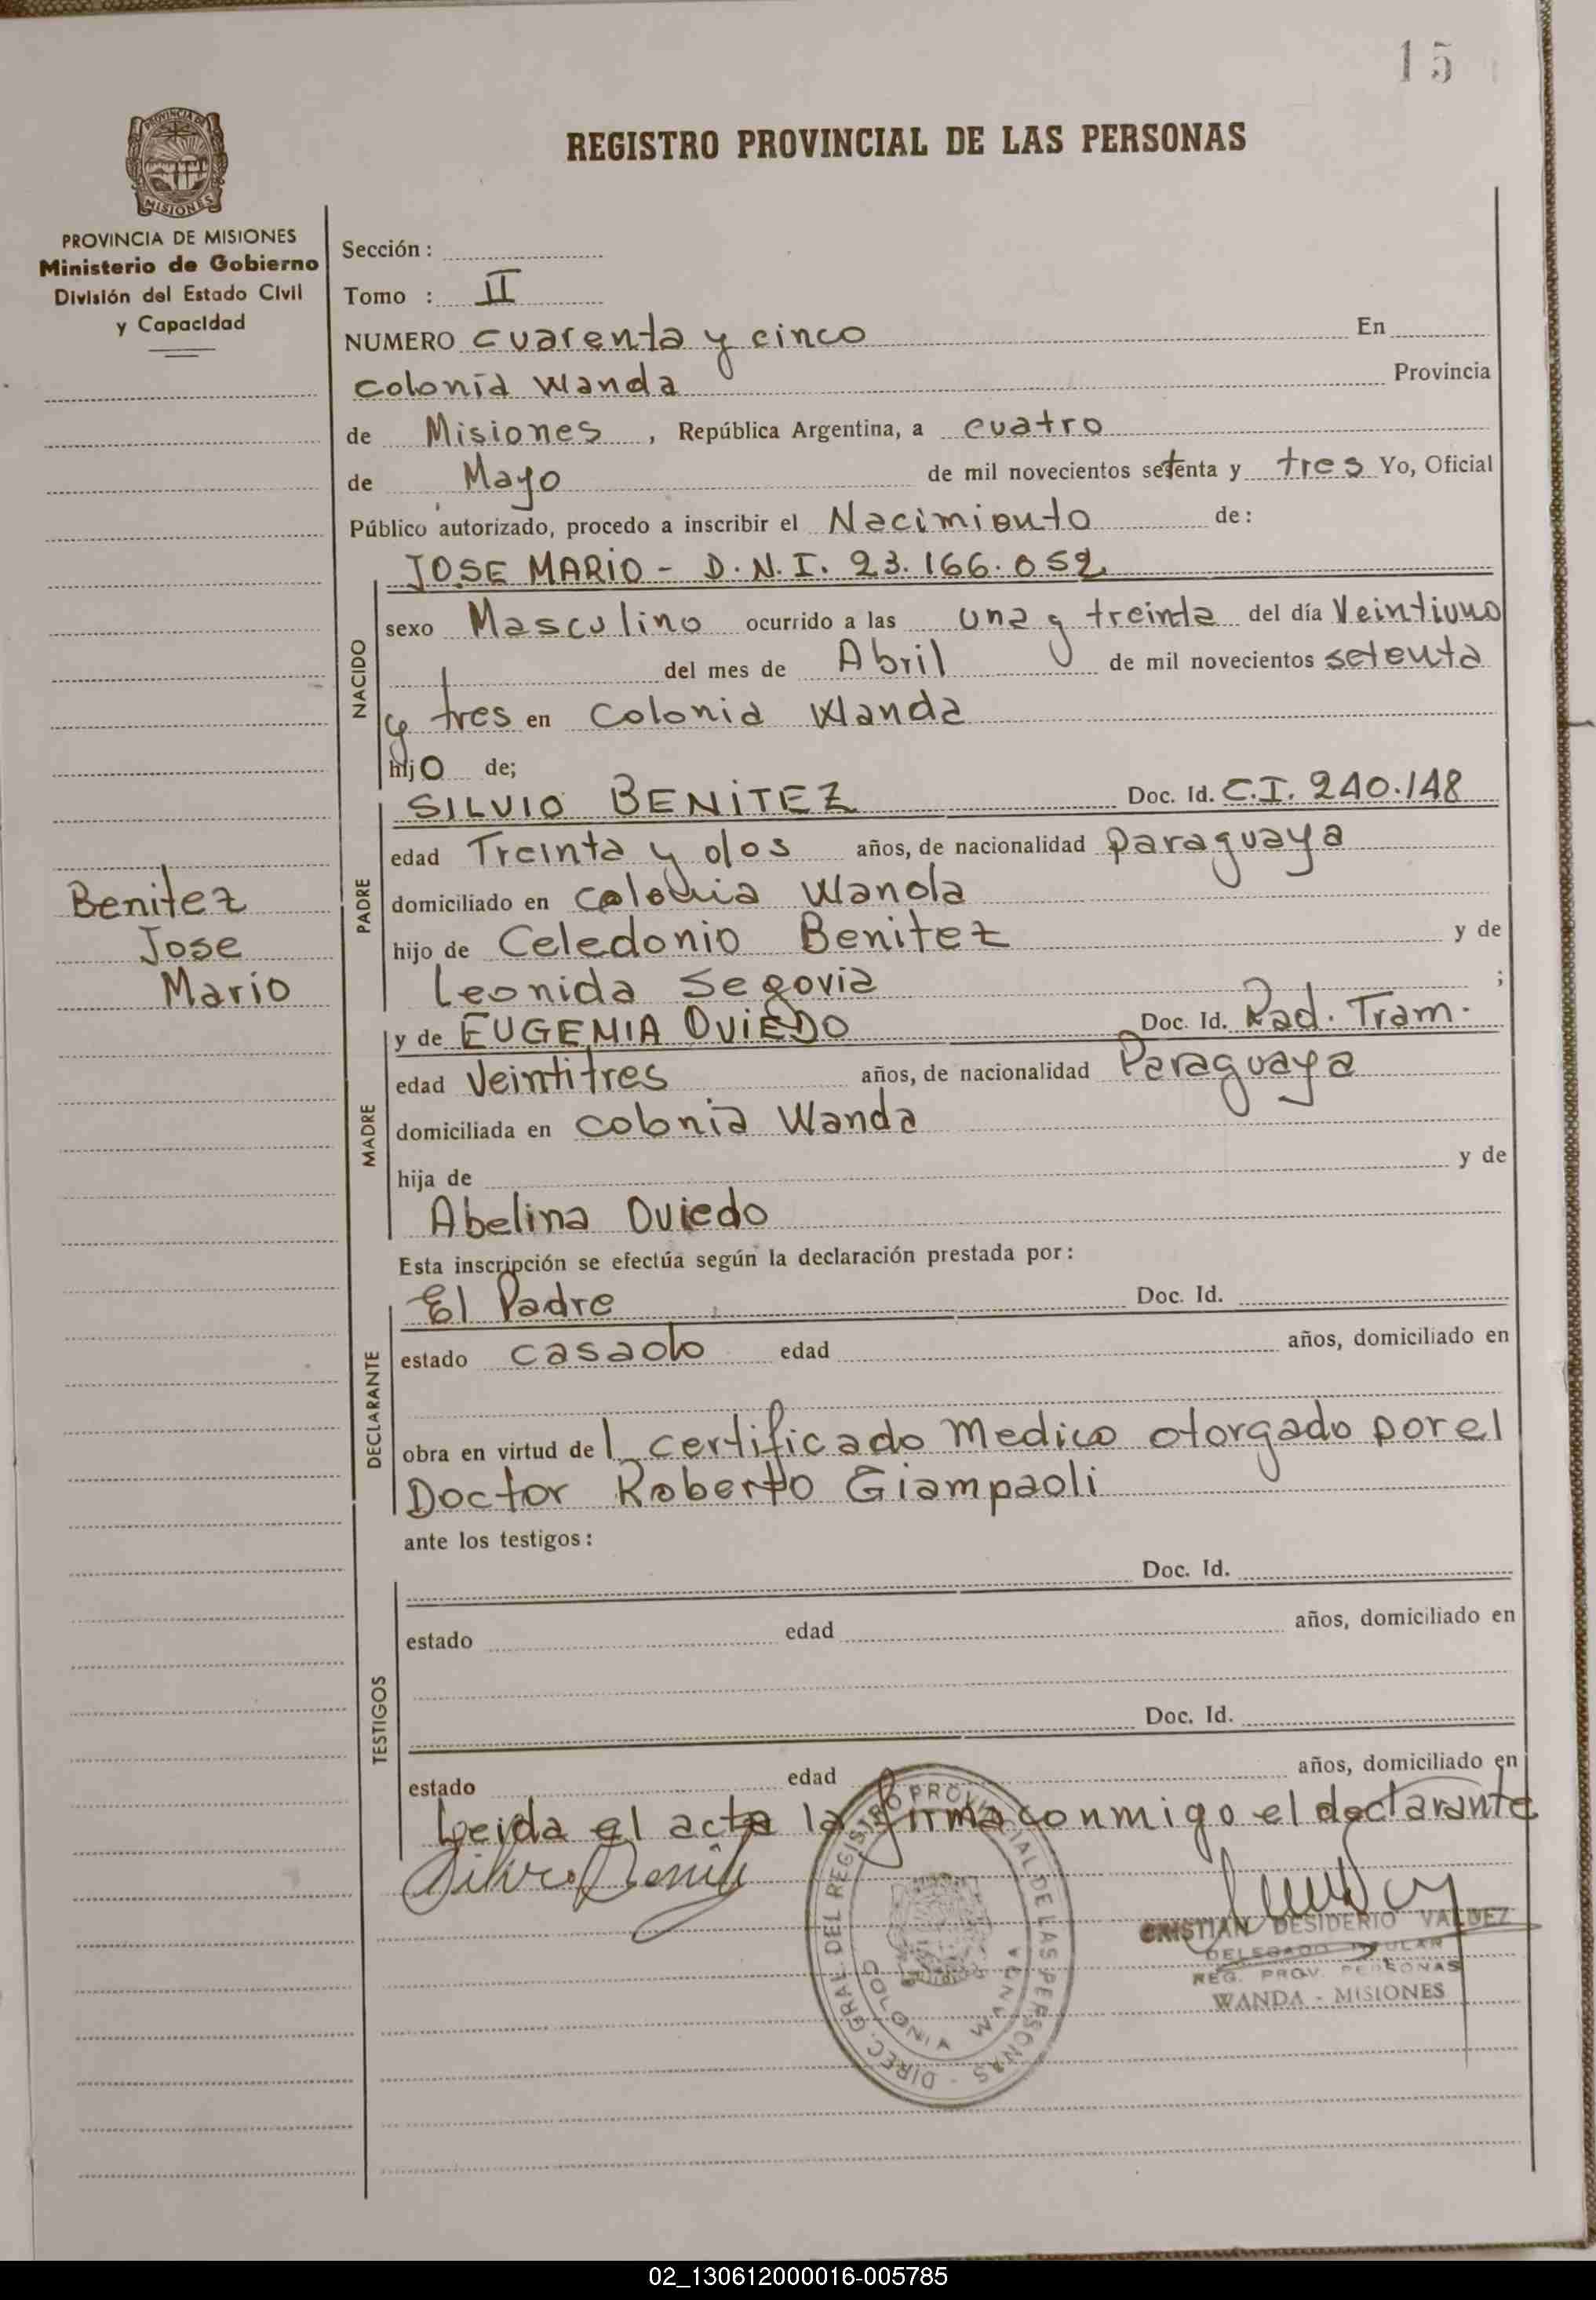 15
REGISTRO PROVINCIAL DE LAS PERSONAS
PROVINCIA DE MISIONES
MISIONES
PROVINCIA DE MISIONES
Ministerio de Gobierno
División del Estado Civil
y Capacidad
Sección :
Tomo : II
NUMERO cuarenta y cinco En
colonia Wanda Provincia
de Misiones, República Argentina, a cuatro
de Mayo de mil novecientos setenta y tres Yo, Oficial
Público autorizado, procedo a inscribir el Nacimiento de:
NACIDO
JOSE MARIO - D.N.I. 23.166.052
sexo Masculino ocurrido a las una y treinta del día Veintiuno
del mes de Abril de mil novecientos setenta
y tres en Colonia Wanda
hijo de;
PADRE
SILVIO BENITEZ Doc. Id. C.I. 240.148
edad Treinta y dos años, de nacionalidad paraguaya
domiciliado en colonia Wanda
hijo de Celedonio Benitez y de
Leonida Segovia ;
Benitez
Jose
Mario
MADRE
y de EUGENIA OVIEDO Doc. Id. Rad. Tram.
edad Veintitres años, de nacionalidad Paraguaya
domiciliada en colonia Wanda
hija de y de
Abelina Oviedo
Esta inscripción se efectúa según la declaración prestada por:
DECLARANTE
El Padre Doc. Id.
estado casado edad años, domiciliado en
obra en virtud del certificado Medico otorgado por el
Doctor Roberto Giampaoli
ante los testigos:
TESTIGOS
Doc. Id.
estado edad años, domiciliado en
Doc. Id.
estado edad años, domiciliado en
Leida el acta la firma conmigo el declarante
Silvio Benitez
DIREC. GRAL. DEL REGISTRO PROVINCIAL DE LAS PERSONAS -
COLONIA WANDA
CRISTIAN DESIDERIO VALDEZ
DELEGADO TITULAR
REG. PROV. PERSONAS
WANDA - MISIONES
02_130612000016-005785